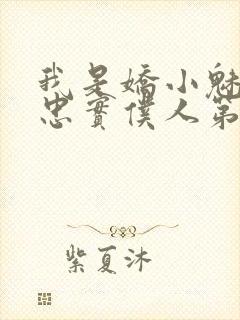 我是嬌小魅
忠實僕人第
紫夏沐